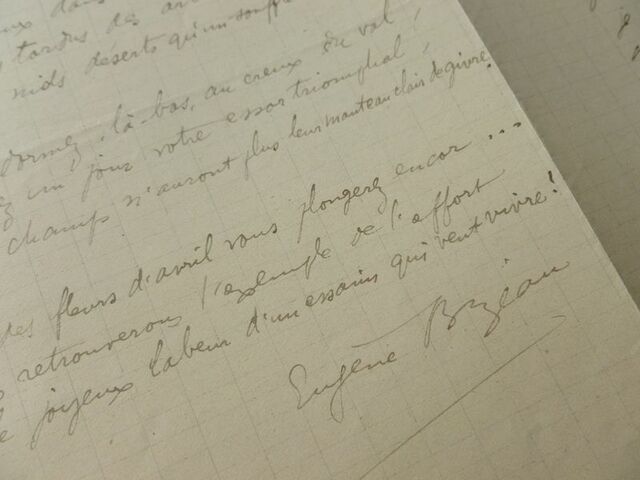 dans
tordus des
nids déserts qu'un souffle
dormez, là-bas, au creux du val,
un jour votre essor triomphal,
champs n'auront plus leur manteau clair de givre.
des fleurs d'avril vous plongerez encor...
retrouverons l'exemple de l'effort
joyeux labeur d'un essaim qui veut vivre!
Eugène Bizeau